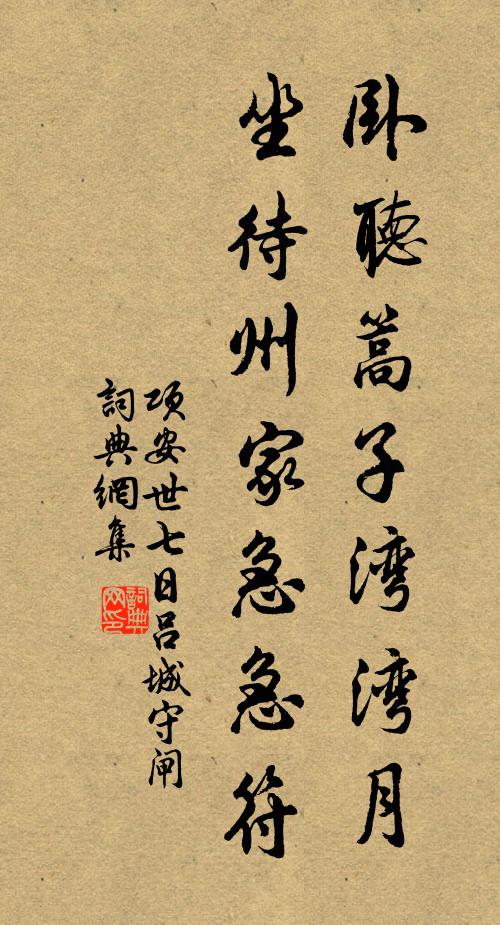 卧聽篙子湾湾月
坐待州家急急符
项安世七日吕城守闸
詞典網集
詞典网印